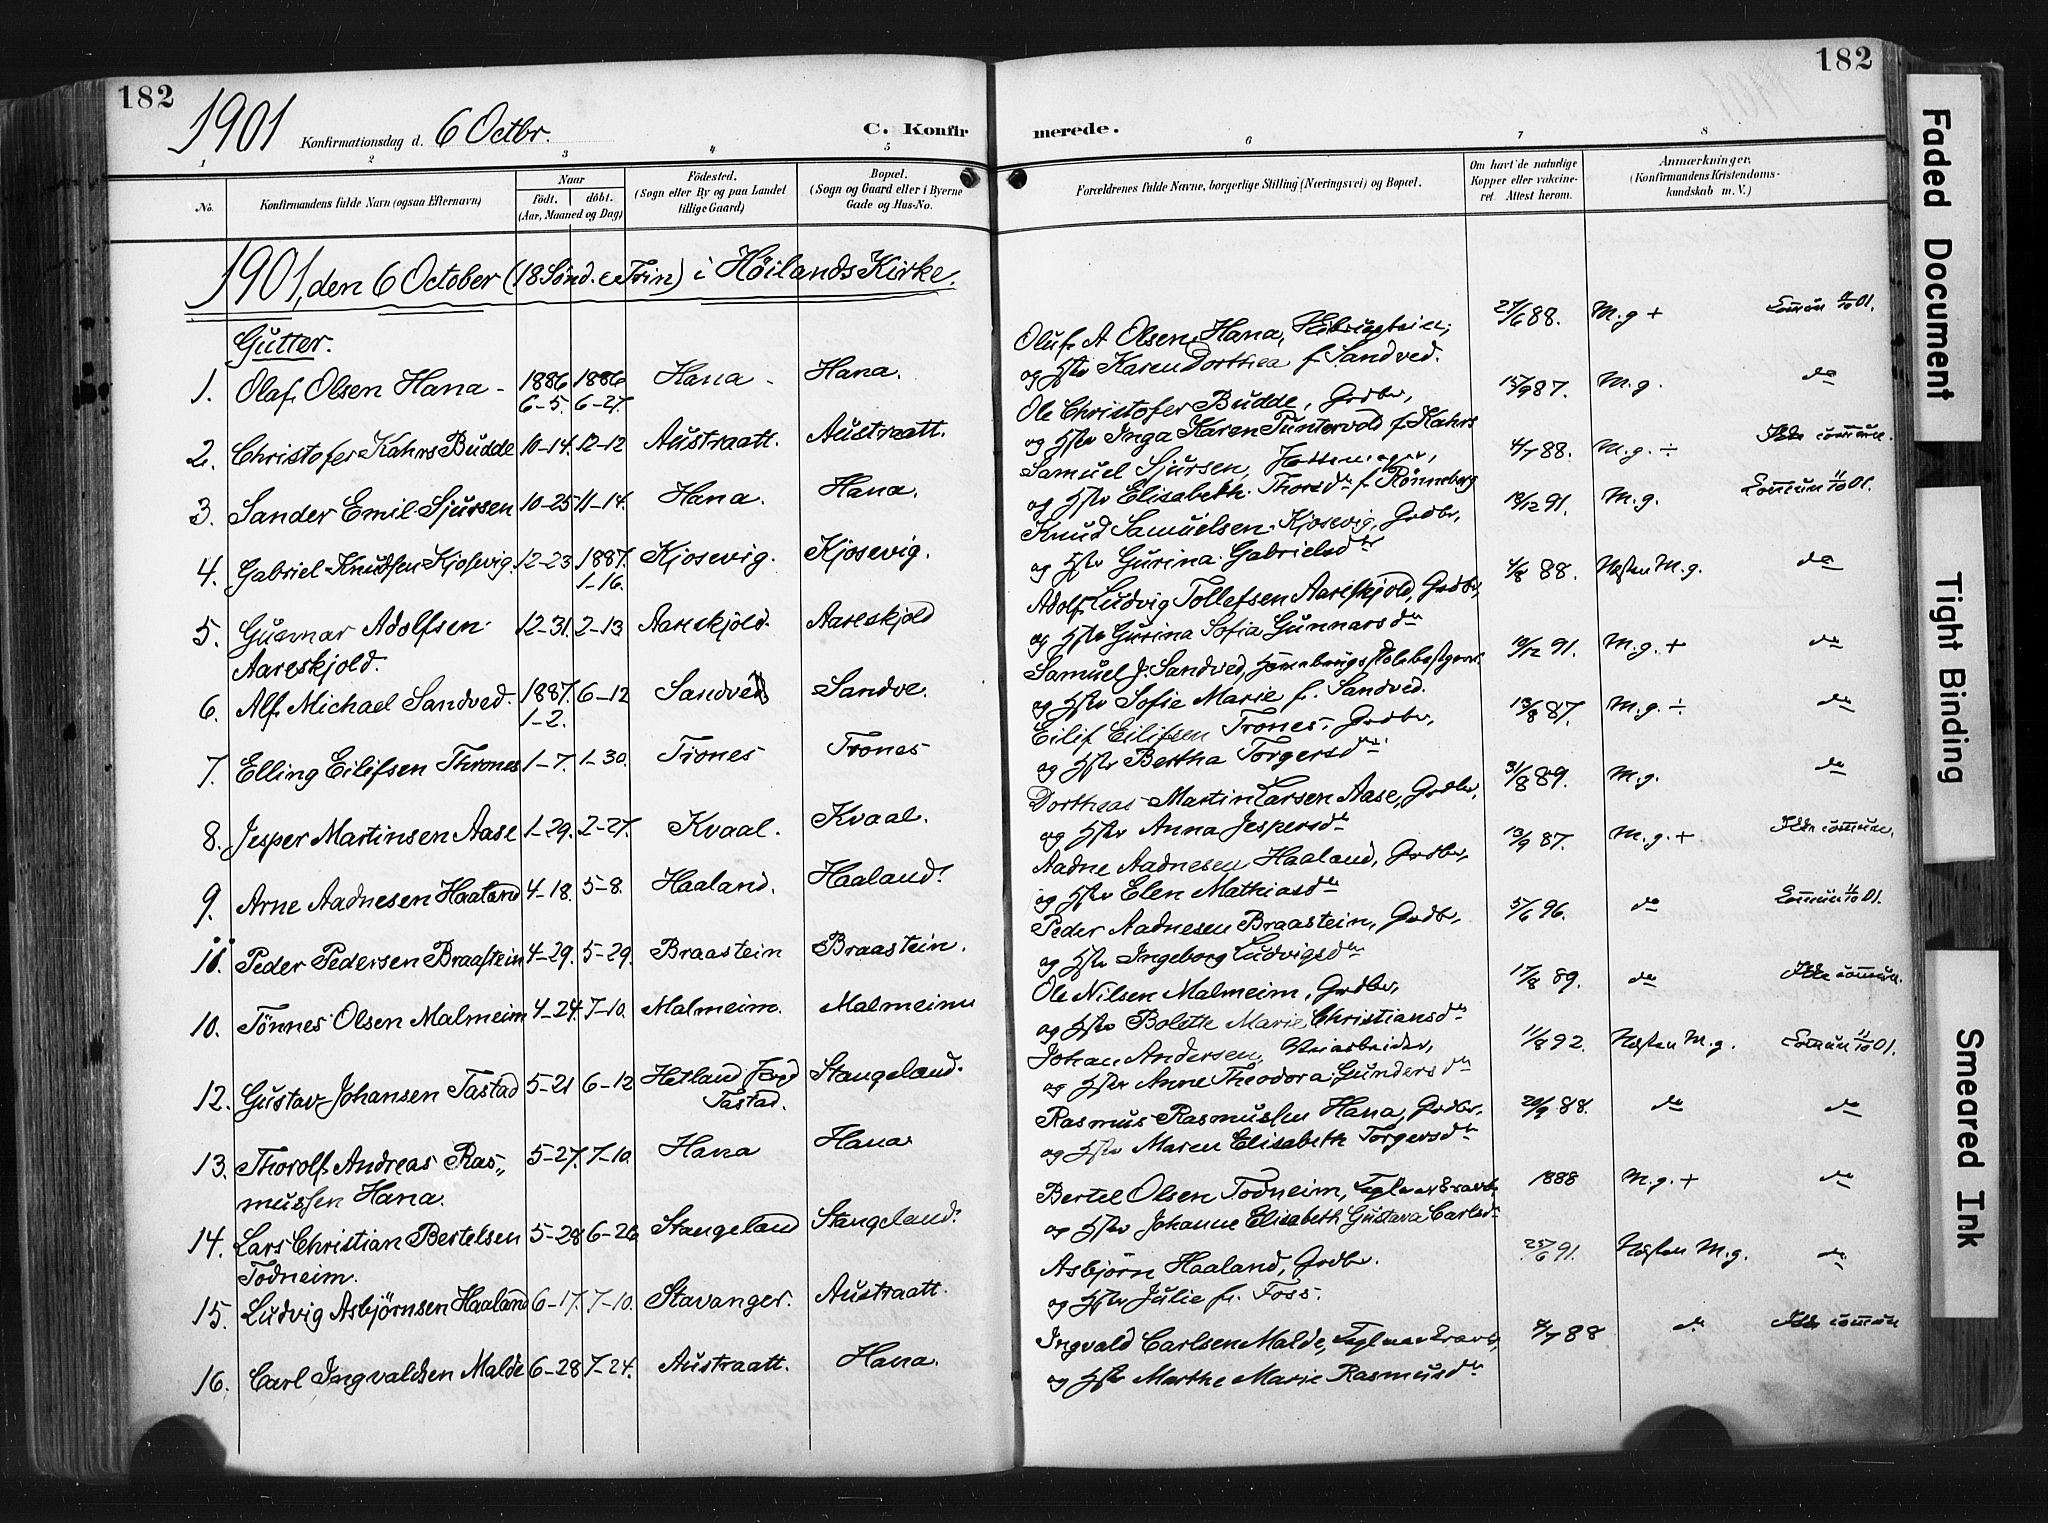 182
1901
Konfirmationsdag d. 6 Octbr.
C. Konfir
1
2
3
4
5
No.
Konfirmandens fulde Navn (ogsaa Efternavn)
Naar
födt.
döbt.
(Aar, Maaned og Dag)
Födested.
(Sogn eller By og paa Landet
tillige Gaard)
Bopæl.
(Sogn og Gaard eller i Byerne
Gade og Hus-No.
1901, den 6 October (18 Sönd. e Trin) i Höilands Kirke.
Gutter.
1. Olaf Olsen Hana - 1886 6-5. 1886 6-27. Hana - Hana.
2. Christofer Kahrs Budde 10-14. 12-12 Austraatt. Austraatt.
3. Sander Emil Sjursen 10-25 11-14. Hana. Hana.
4. Gabriel Knudsen Kjosevig. 12-23 1887. 1-16. Kjosevig. Kjosevig.
5. Gunnar Adolfsen 12-31. 2-13 Aareskjold. Aareskjold
Aareskjold.
6. Alf Michael Sandved. 1887. 1-2. 6-12 Sandved Sandve.
7. Elling Eilifsen Thrones 1-7. 1-30. Trones Trones
8. Jesper Martinsen Aase 1-29. 2-27. Kvaal. Kvaal.
9. Arne Aadnesen Haaland 4-18. 5-8. Haaland. Haaland.
11. Peder Pedersen Braastein 4-29. 5-29. Braastein Braastein.
10. Tönnes Olsen Malmeim 4-24. 7-10. Malmeim. Malmeim
12. Gustav Johansen Tastad 5-21 6-12 Hetland Jörp Stangeland.
Tastad.
13. Thorolf Andreas Ras- 5-27. 7-10. Hana Hana
mussen Hana.
14. Lars Christian Bertelsen 5-28 6-26 Stangeland Stangeland.
Todneim.
15. Ludvig Asbjörnsen Haaland 6-17. 7-10. Stavanger. Austraatt.
16. Carl Ingvaldsen Malde 6-28 7-24. Austraatt. Hana.
182
merede.
6
7
8
Forældrenes fulde Navne, borgerlige Stilling (Næringsvei) og Bopæl.
Om havt de naturlige
Kopper eller vakcine-
ret. Attest herom.
Anmærkninger.
(Konfirmandens Kristendoms-
kundskab m. V.)
Oluf A Olsen, Hana, 27/6 88. M.g + Commun 11/10 01.
og Hstr Karen Dorthea f. Sandved.
Ole Christofer Budde, Grdbr, 15/9 87. M.g. do
og Hstr Inga Karen Tuntervold f Kahrs
Samuel Sjursen, 4/7 88. M.g. ÷ Ikke commun.
og Hstr Elisabeth Thorsdtr f. Rönneberg
Knud Samuelsen Kjosevig, Grdbr, 18/12 91. M.g. Commun 11/10 01.
og Hstr Gurina Gabrielsdtr
Adolf Ludvig Tollefsen Aareskjold, Grdbr, 4/8 88. Næsten M.g. do
og Hstr Gurina Sofia Gunnarsdtr
Samuel J. Sandved, 10/12 91. M.g. + do
og Hstr Sofie Marie f. Sandved.
Eilif Eilifsen Trones, Grdbr, 13/8 87. M.g. ÷ do
og Hstr Bertha Torgersdtr
Dortheas Martin Larsen Aase, Grdbr, 31/8 89. M.g. do
og Hstr Anna Jespersdtr
Aadne Aadnesen Haaland, Grdbr, 13/9 87. M.g. + Ikke commun.
og Hstr Elen Mathiasdtr
Peder Aadnesen Braastein, Grdbr, 5/6 96. do Commun 11/10 01.
og Hstr Ingeborg Ludvigsdtr
Ole Nilsen Malmeim, Grdbr, 17/8 89. do Ikke commun.
og Hstr Bolette Marie Christiansdtr
Johan Andersen, Veiarbeider, 11/8 92. Næsten M.g. Commun 11/10 01.
og Hstr Anne Theodora Gundersdtr
Rasmus Rasmussen Hana, Grdbr, 20/9 88. do do
og Hstr Maren Elisabeth Torgersdtr
Bertel Olsen Todneim, 1888 M.g. + do
og Hstr Johanne Elisabeth Gustava Carlsdtr
Asbjörn Haaland, Grdbr. 25/6 91. Næsten M.g. do
og Hstr Julie f. Foss.
Ingvald Carlsen Malde, 4/7 88 do Ikke commun
og Hstr Marthe Marie Rasmusdtr
Faded Document
Tight Binding
Smeared Ink